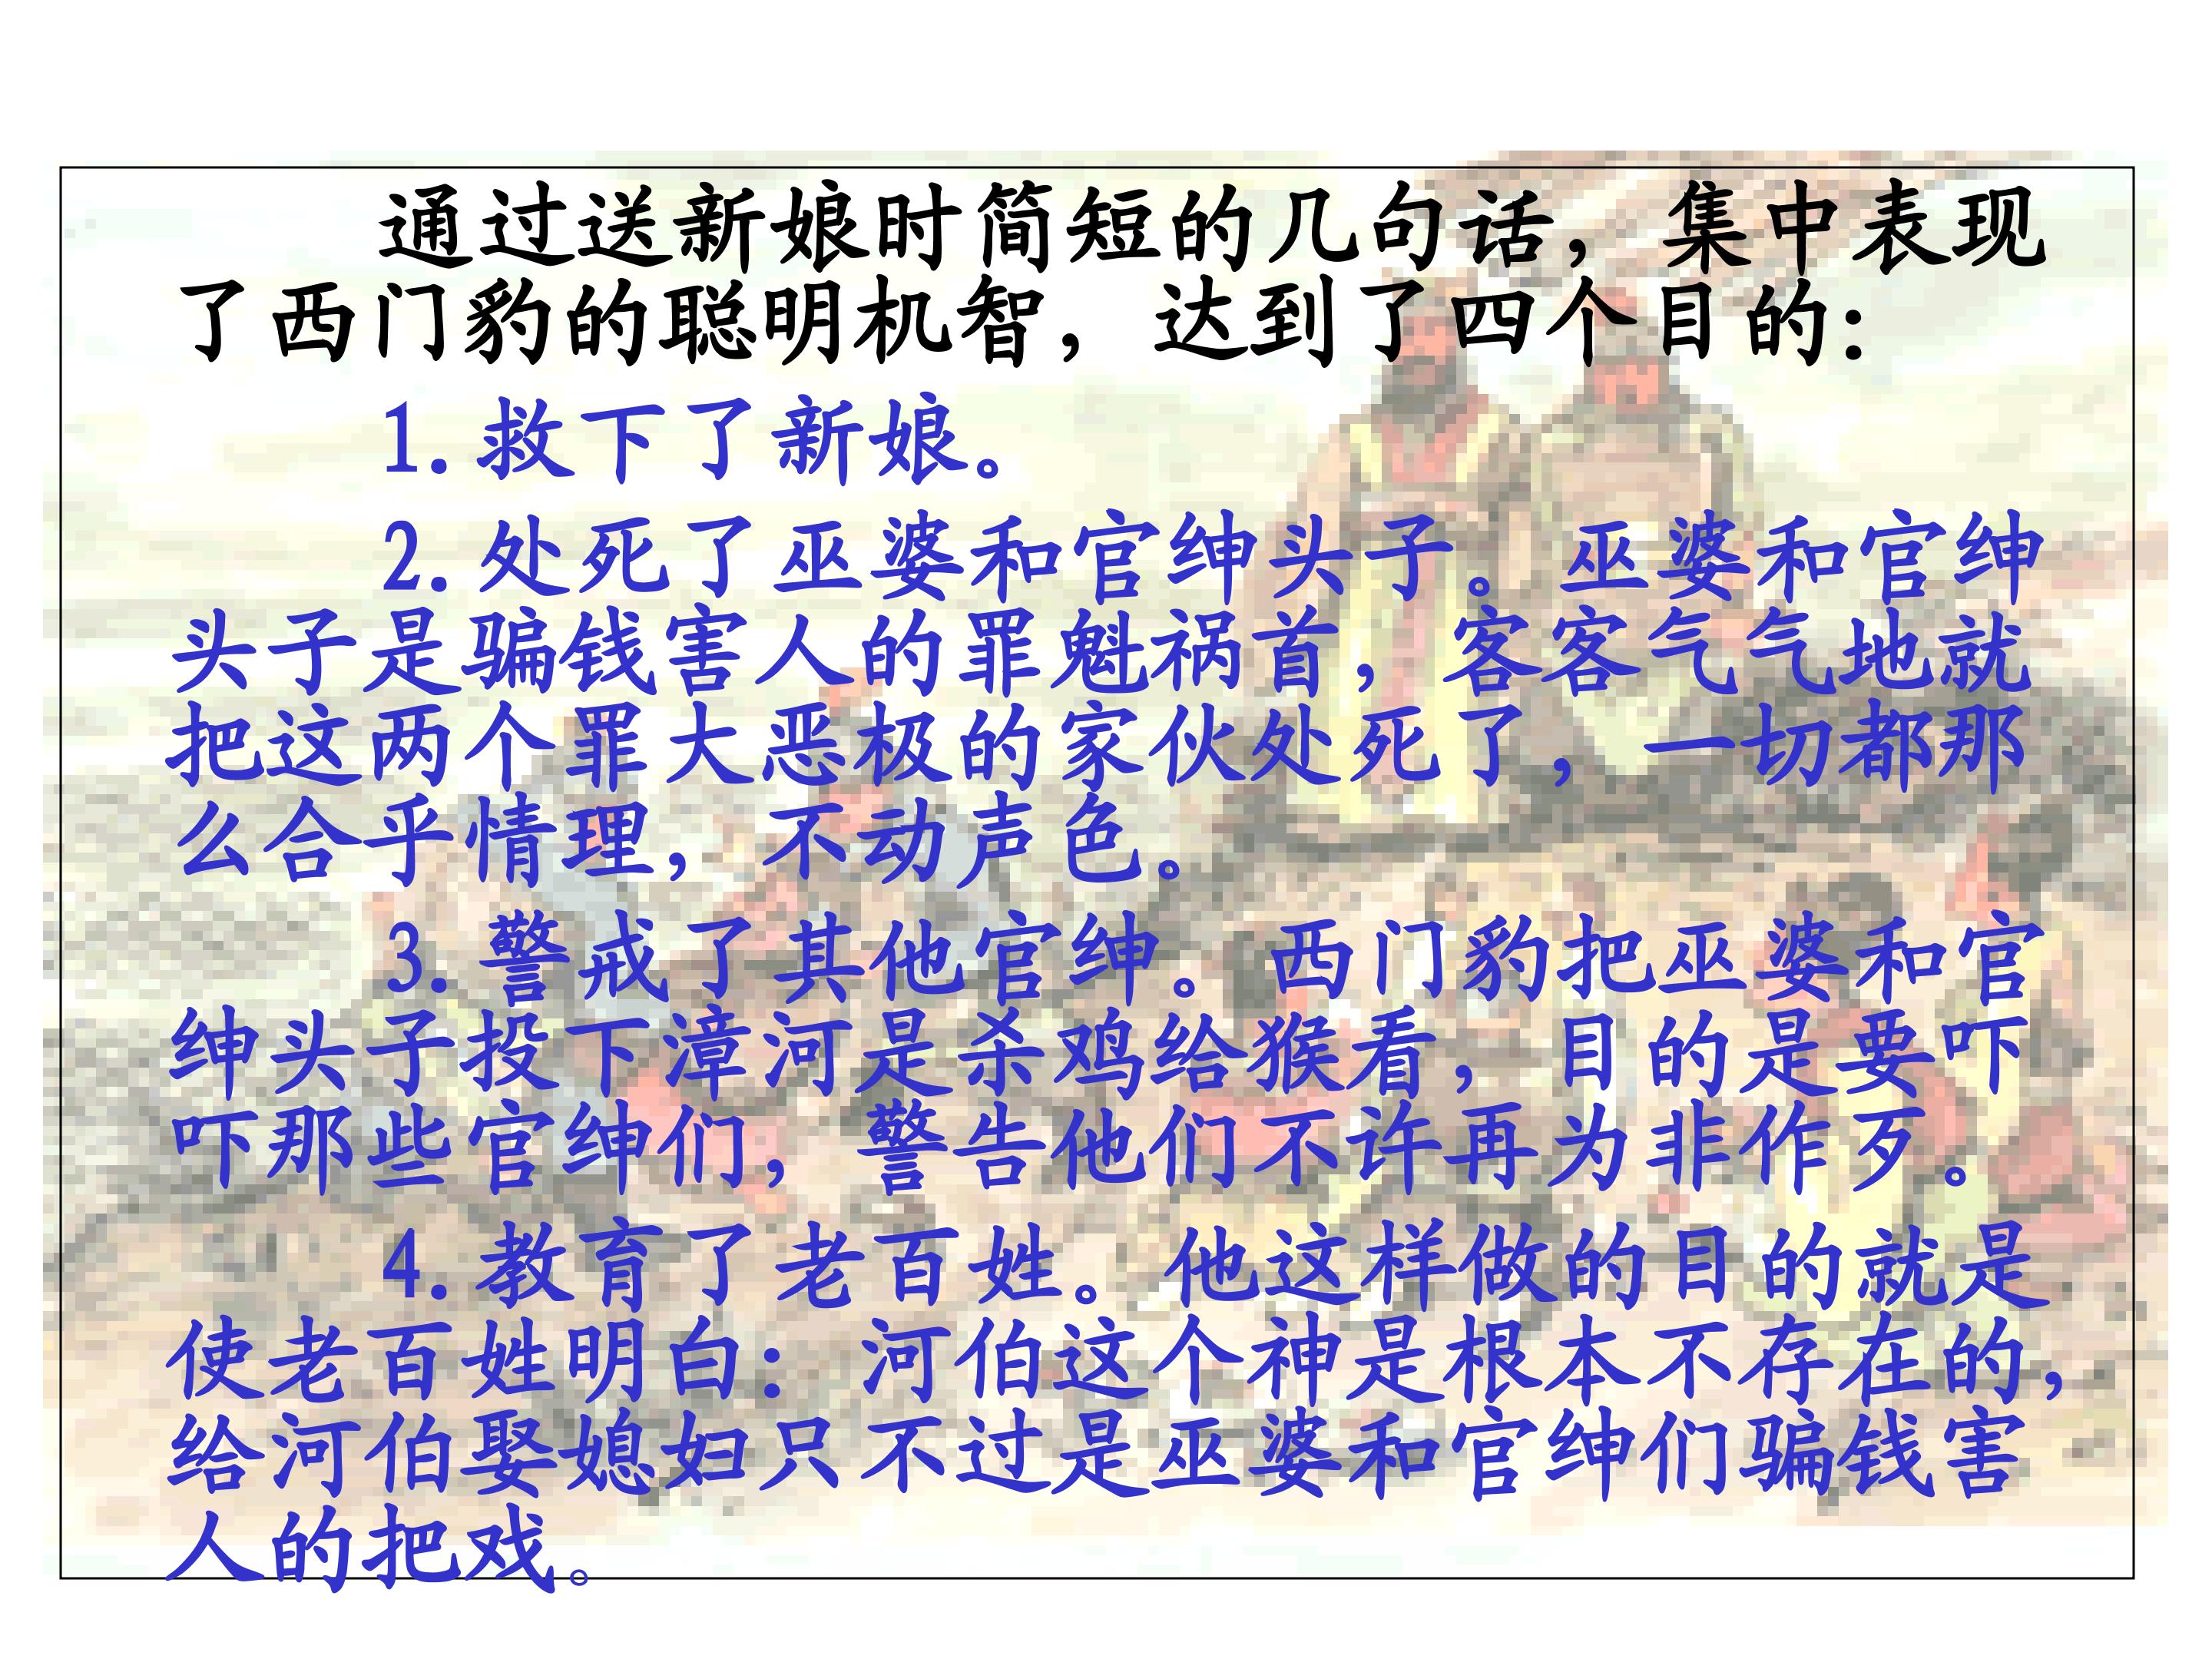 通过送新娘时简短的几句话，集中表现
了西门豹的聪明机智，达到了四个目的：
1.救下了新娘。
2.处死了巫婆和官绅头子。巫婆和官绅
头子是骗钱害人的罪魁祸首，客客气气地就
把这两个罪大恶极的家伙处死了，一切都那
么合乎情理，不动声色。
3.警戒了其他官绅。西门豹把巫婆和官
绅头子投下漳河是杀鸡给猴看，目的是要吓
吓那些官绅们，警告他们不许再为非作歹。
4.教育了老百姓。他这样做的目的就是
使老百姓明白：河伯这个神是根本不存在的，
给河伯娶媳妇只不过是巫婆和官绅们骗钱害
人的把戏。